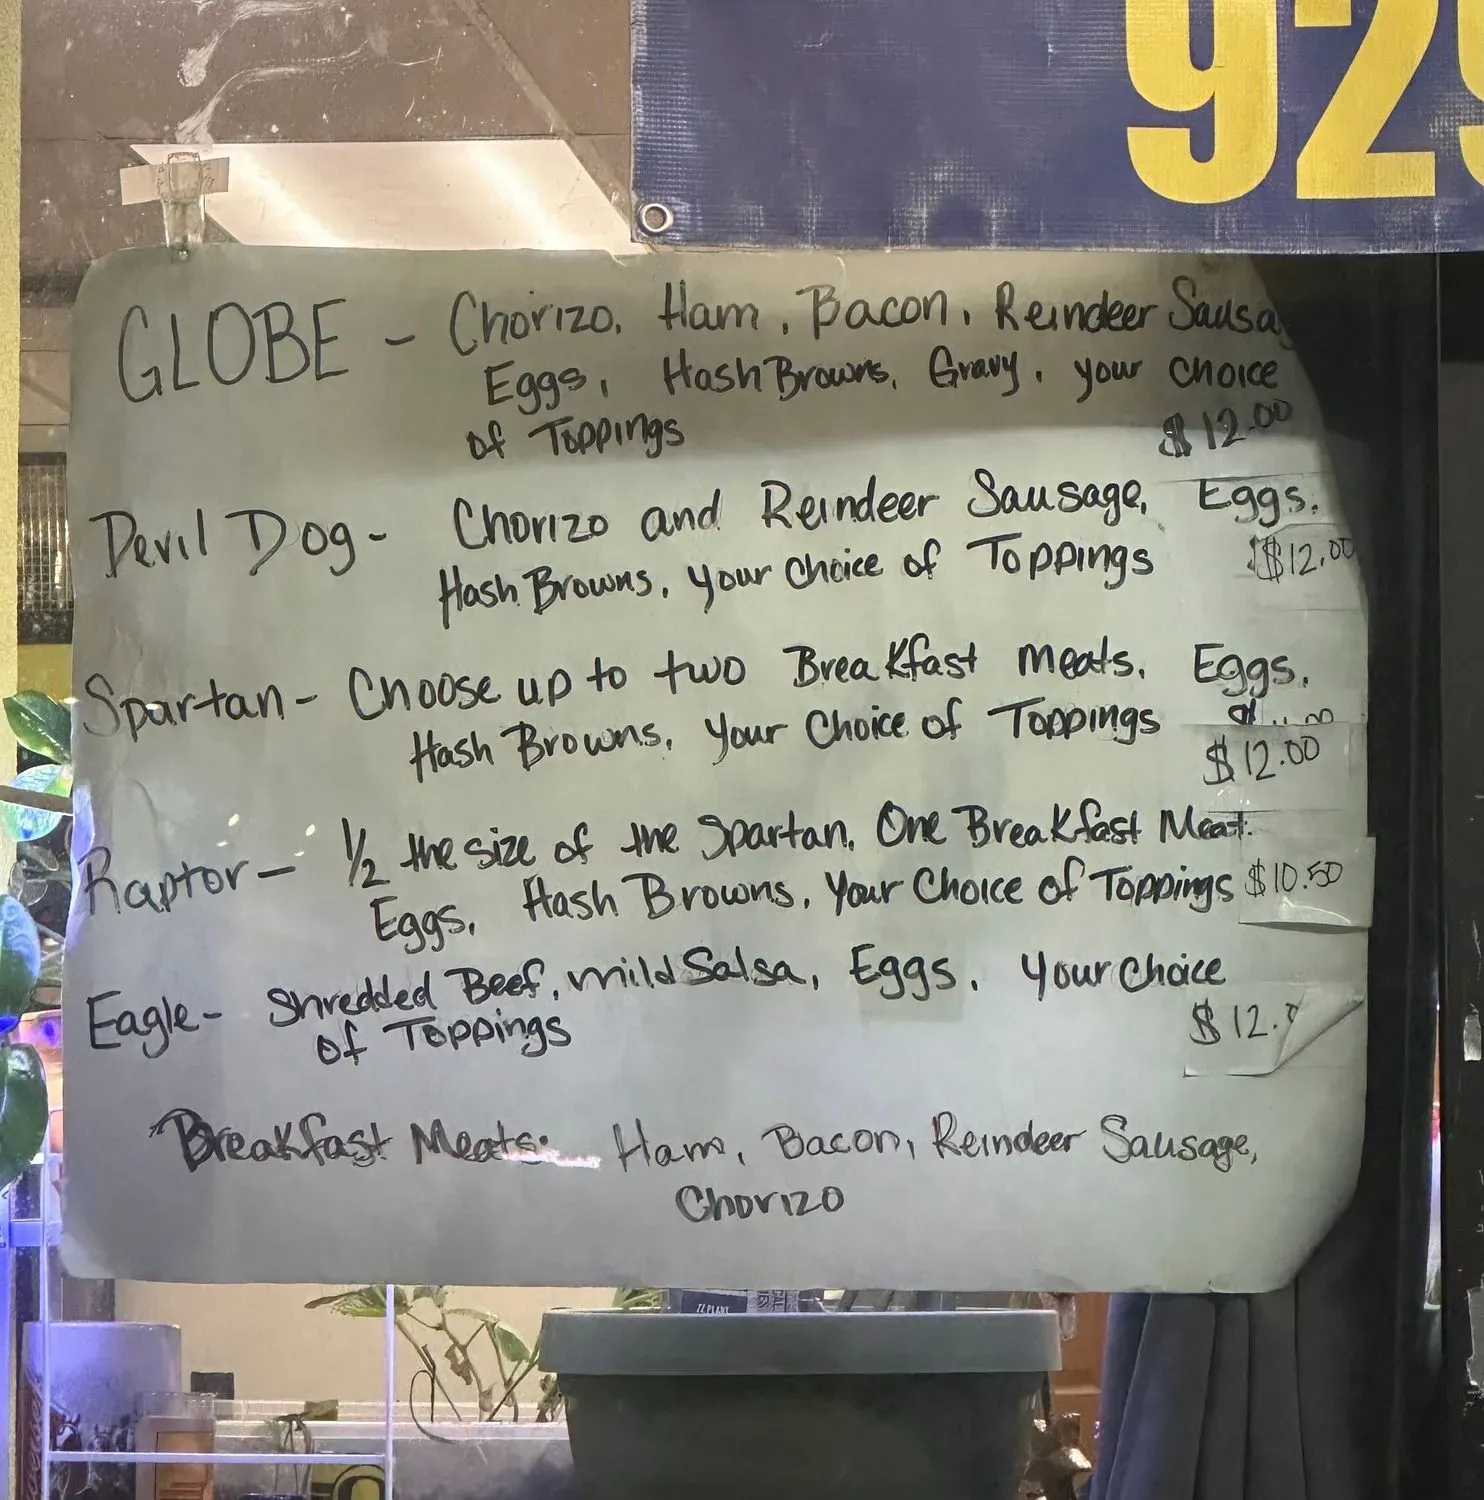 92
GLOBE - Chorizo, Ham, Bacon, Reindeer Sausa
Eggs, Hash Browns, Gravy, your choice
of Toppings $12.00
Devil Dog - Chorizo and Reindeer Sausage, Eggs,
Hash Browns, your choice of Toppings $12.00
Spartan - Choose up to two Breakfast meats, Eggs,
Hash Browns, your Choice of Toppings
$12.00
Raptor - 1/2 the size of the Spartan, One Breakfast Meat.
Eggs, Hash Browns, Your Choice of Toppings $10.50
Eagle - Shredded Beef, mild Salsa, Eggs, Your Choice
of Toppings $12.
Breakfast Meats: Ham, Bacon, Reindeer Sausage,
Chorizo
ZZ PLANT